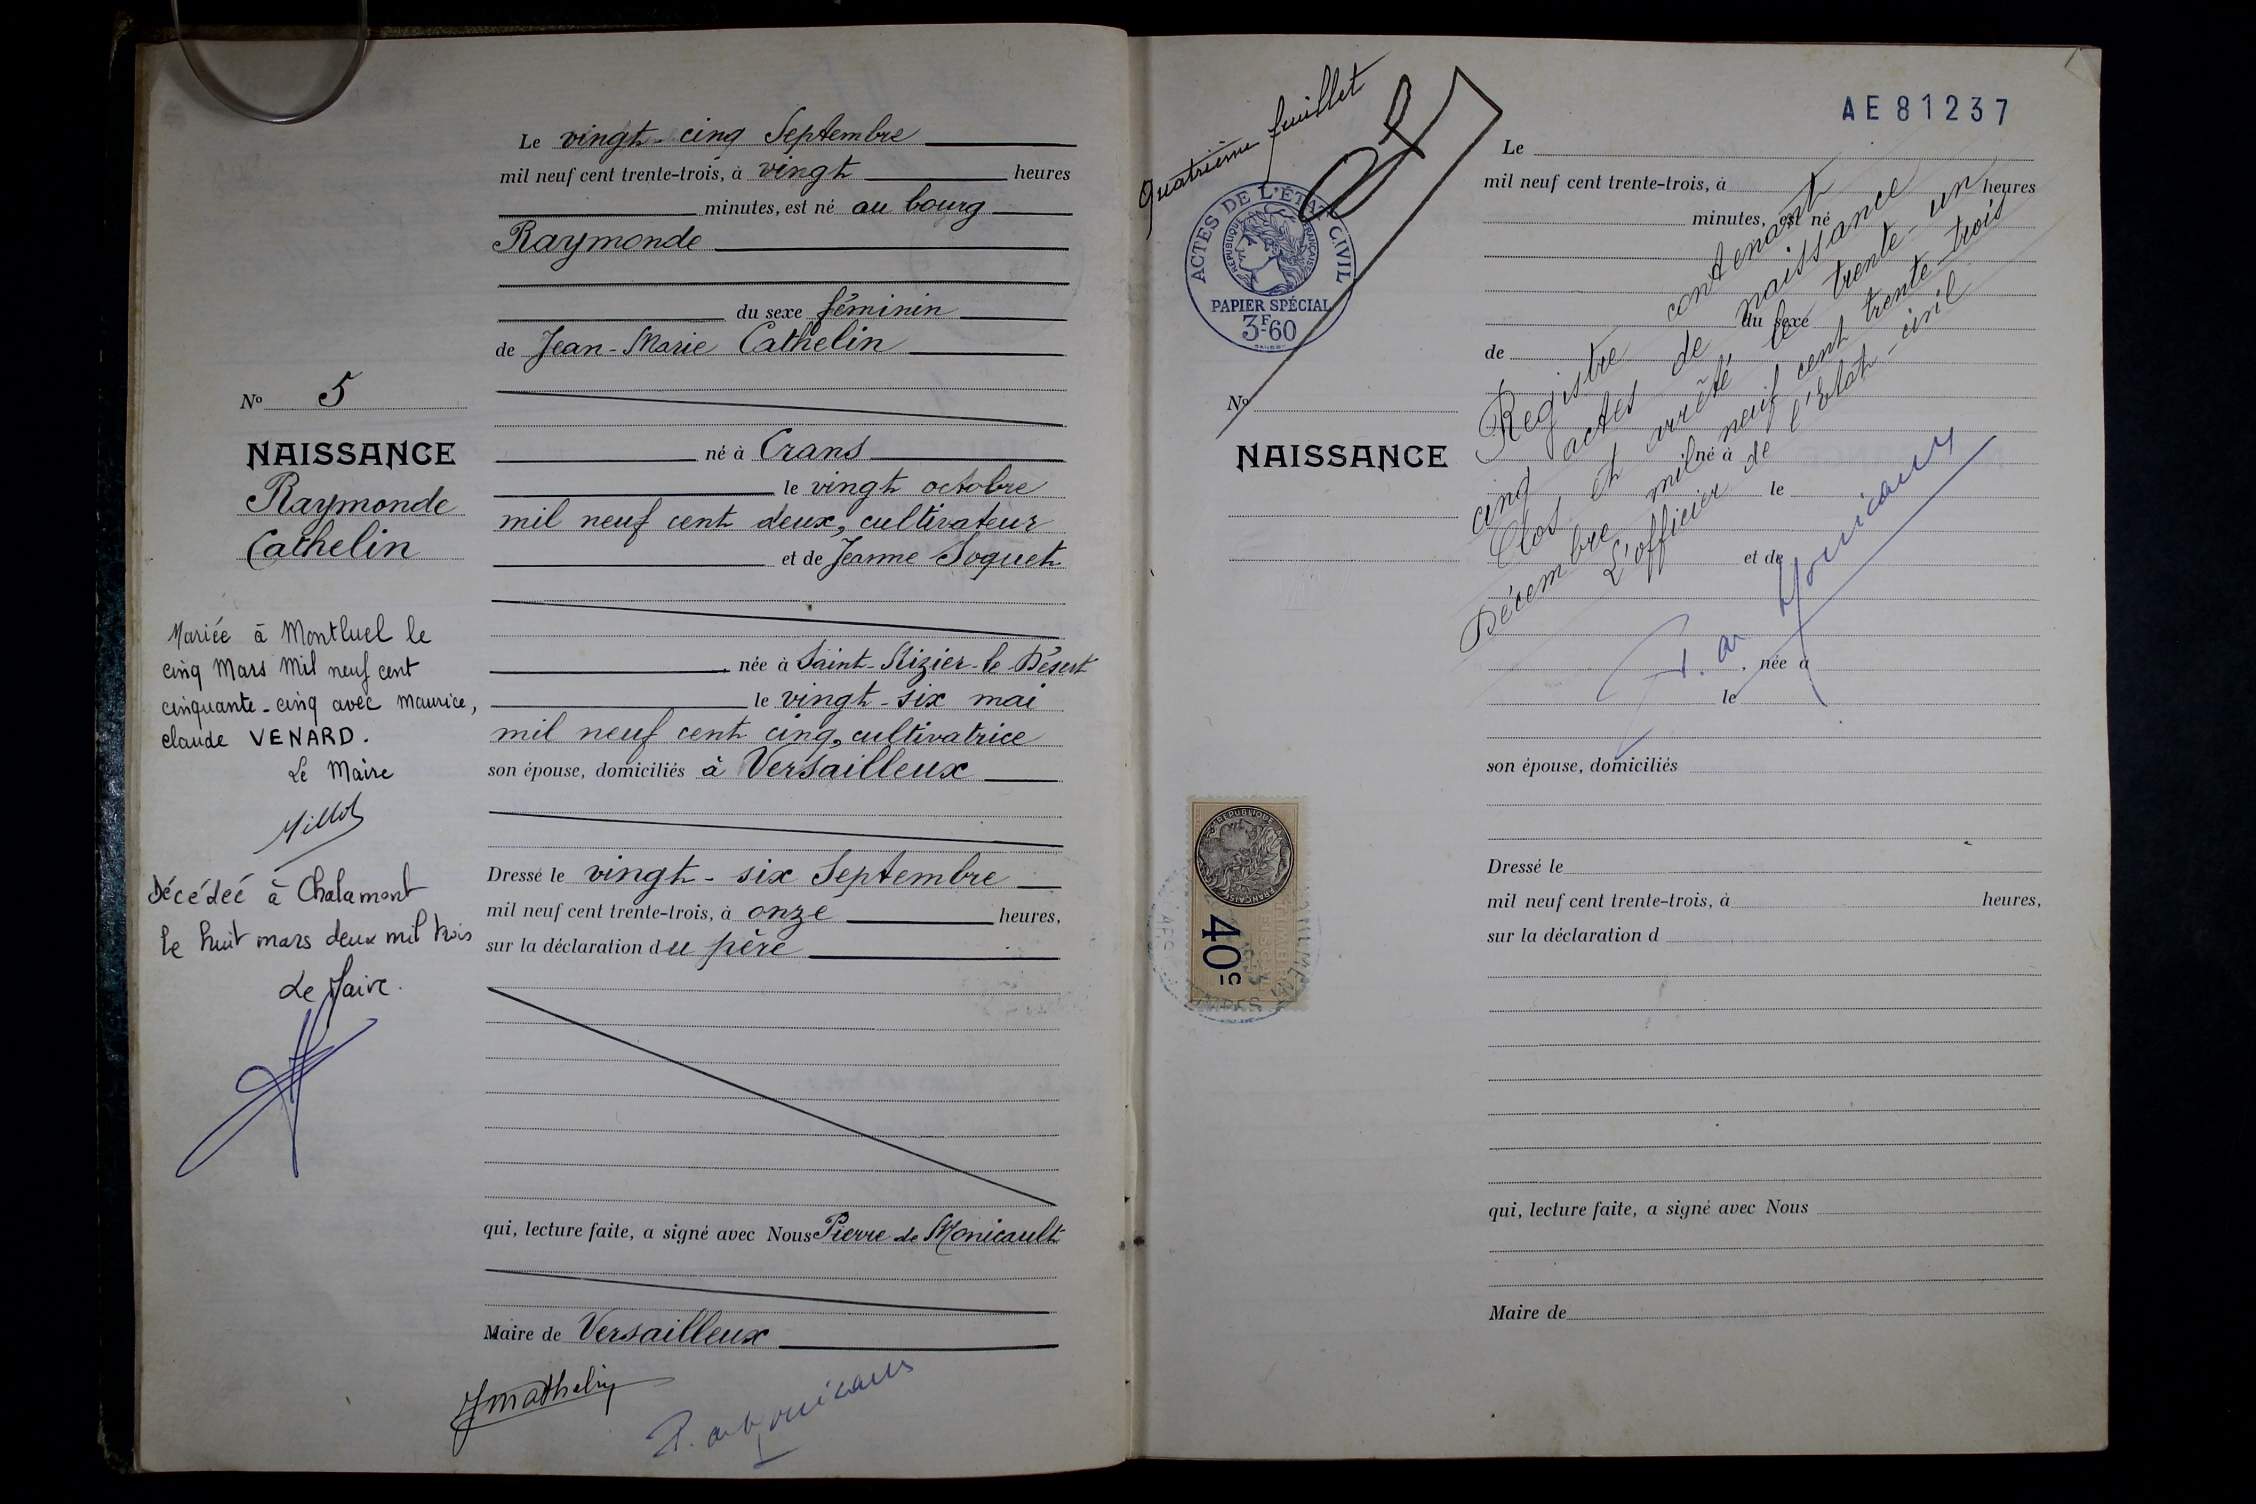 Le vingt-cinq Septembre
mil neuf cent trente-trois, à vingt heures
minutes, est né au bourg
Raymonde
du sexe féminin
de Jean-Marie Cathelin
né à Crans
le vingt octobre
mil neuf cent deux, cultivateur
et de Jeanne Soquet
née à Saint-Nizier-le Désert
le vingt-six mai
mil neuf cent cinq, cultivatrice
son épouse, domiciliés à Versailleux
Dressé le vingt-six Septembre
mil neuf cent trente-trois, à onze heures,
sur la déclaration du père
qui, lecture faite, a signé avec Nous Pierre de Monicault
Maire de Versailleux
No 5
NAISSANCE
Raymonde
Cathelin
Mariée à Montluel le
cinq Mars Mil neuf cent
cinquante-cinq avec Maurice,
claude VENARD.
Le Maire
Décédeé à Chalamont
le huit mars deux mil trois
Le Maire.
Quatrième feuillet
ACTES DE L'ÉTAT CIVIL
RÉPUBLIQUE FRANÇAISE
PAPIER SPÉCIAL
3F60
No
NAISSANCE
RÉPUBLIQUE FRANÇAISE
40c
AE 81237
Le
mil neuf cent trente-trois, à heures
minutes, est né
du sexe
de
né à
le
et de
née à
le
son épouse, domiciliés
Dressé le
mil neuf cent trente-trois, à heures,
sur la déclaration d
qui, lecture faite, a signé avec Nous
Maire de
Registre contenant
cinq actes de naissance
Clos et arrêté le trente-un
Décembre mil neuf cent trente-trois
L'officier de l'Etat-civil